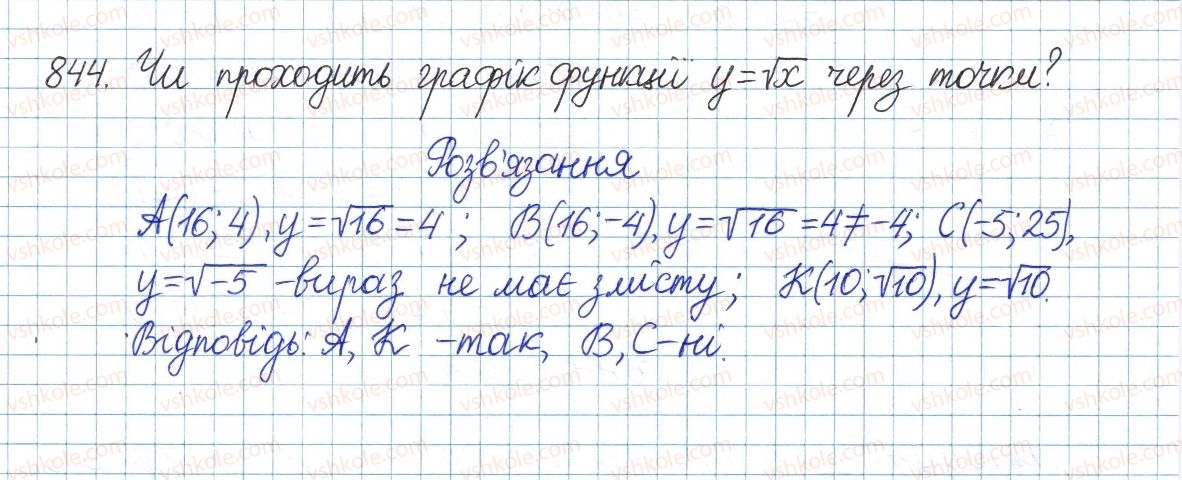 844. Чи проходить графік функції y=√x через точки?
Розв'язання
A(16; 4), y=√16=4; B(16; -4), y=√16=4≠-4; C(-5; 25),
y=√-5 -вираз не має змісту; K(10; √10), y=√10.
Відповідь: A, K -так, B, C-ні.